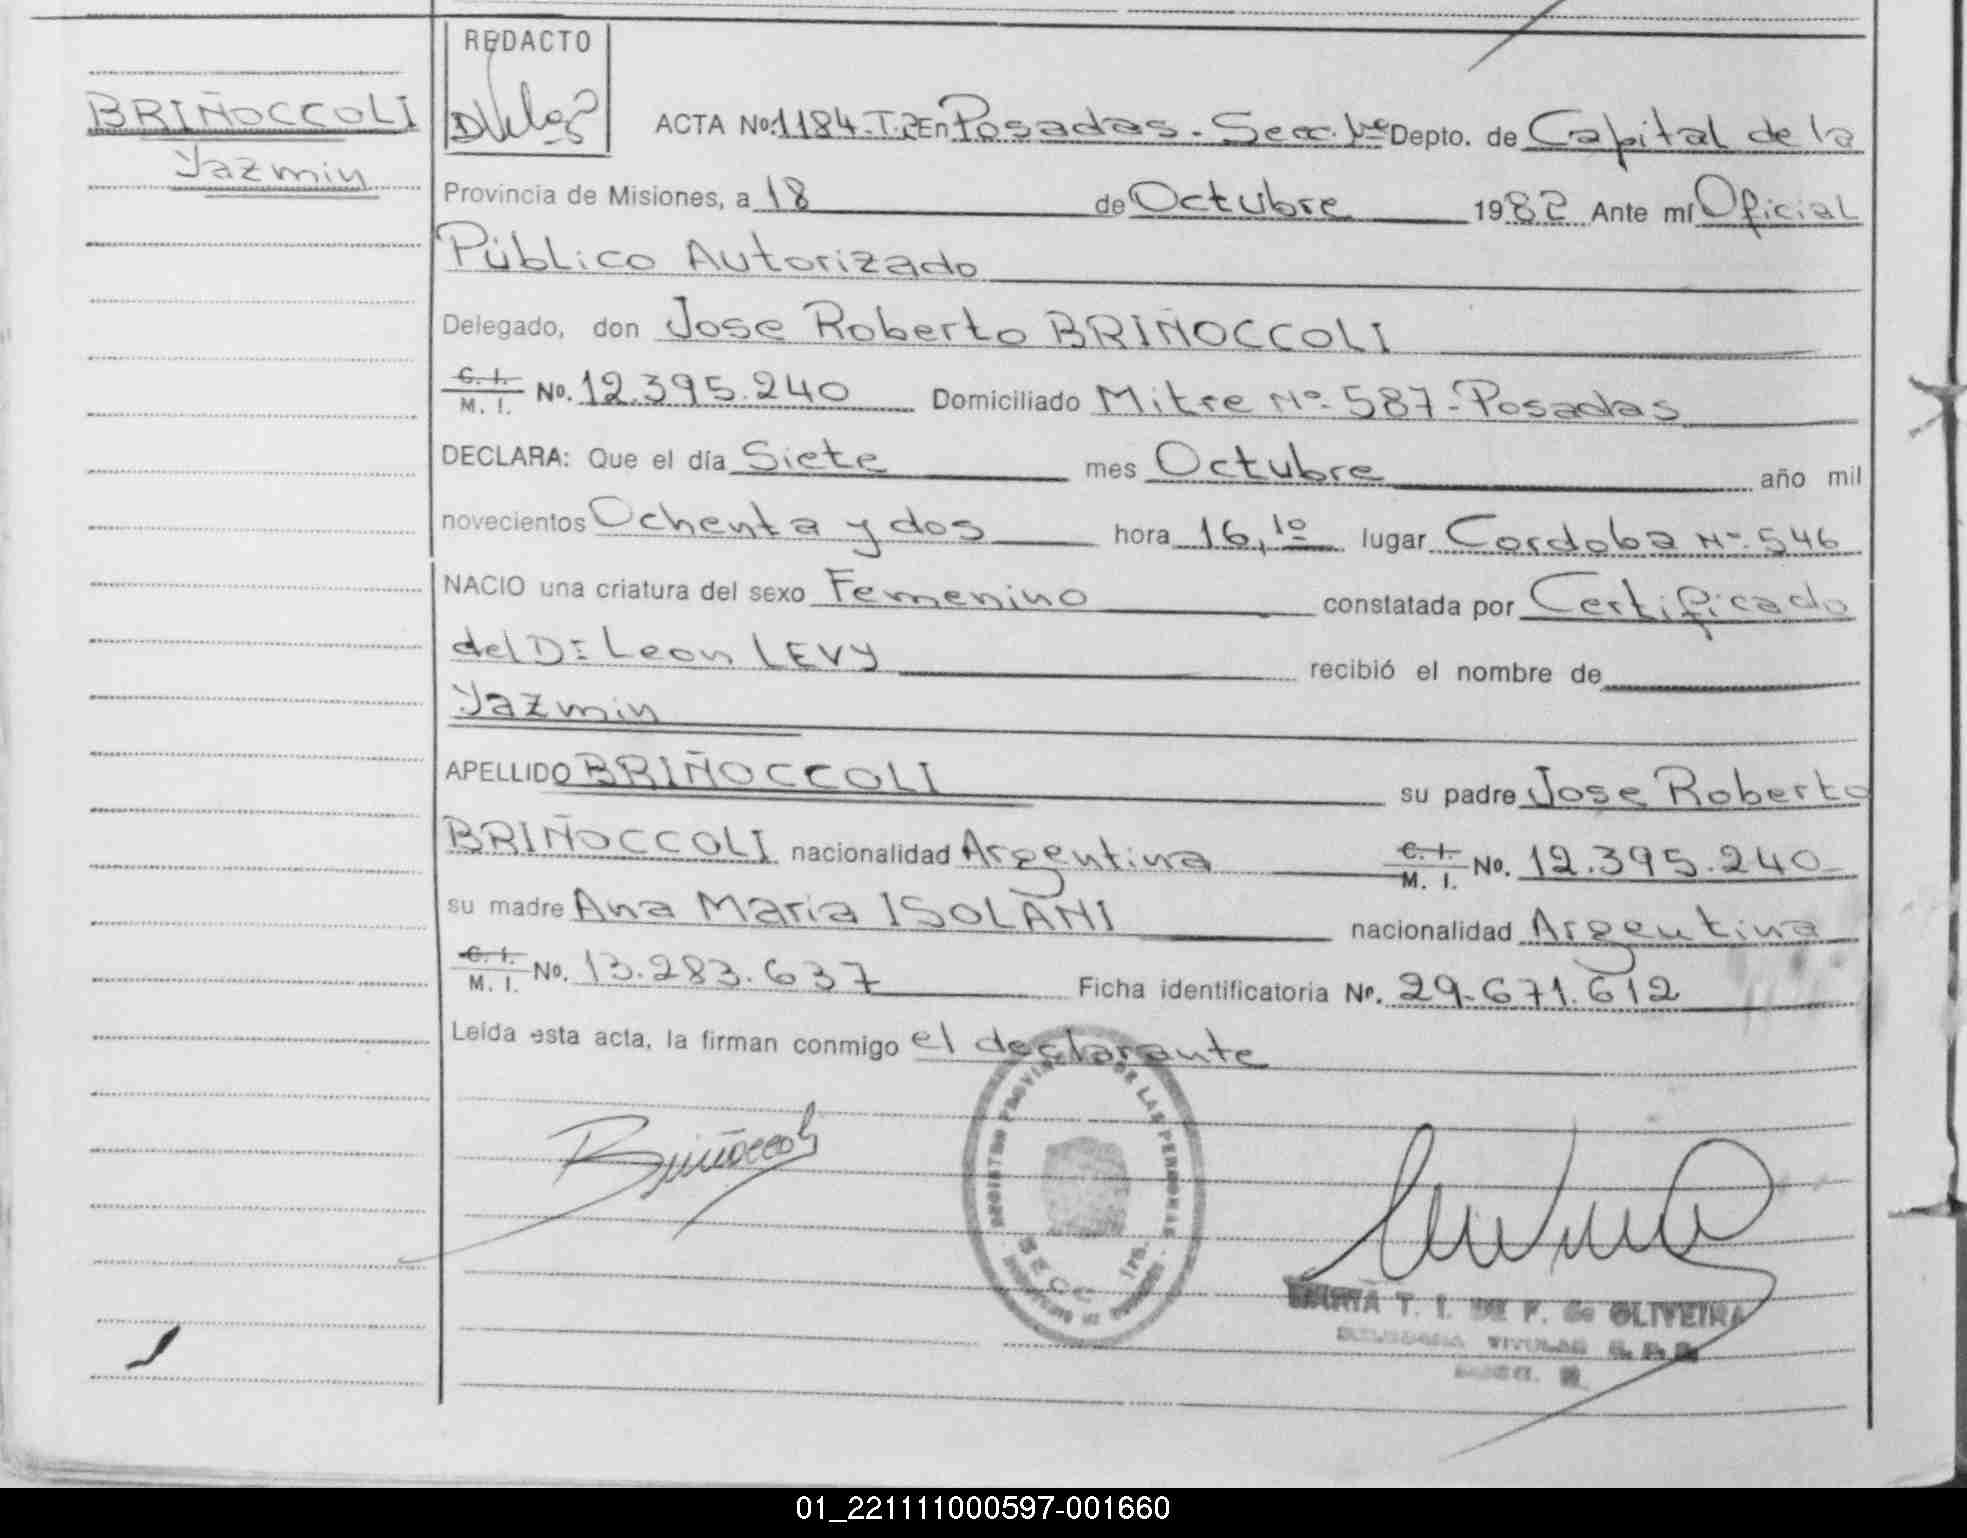 BRIÑOCCOLI
Yazmin
REDACTO
ACTA No. 1184-T.2 En Posadas - Secc. 1ª Depto. de Capital de la
Provincia de Misiones, a 18 de Octubre 1982 Ante mí Oficial
Público Autorizado
Delegado, don Jose Roberto BRIÑOCCOLI
C. I. M. I. No. 12.395.240 Domiciliado Mitre Nº 587 - Posadas
DECLARA: Que el día Siete mes Octubre año mil
novecientos Ochenta y dos hora 16,10 lugar Cordoba Nº 546
NACIO una criatura del sexo Femenino constatada por Certificado
del Dr Leon LEVY recibió el nombre de
Yazmin
APELLIDO BRIÑOCCOLI su padre Jose Roberto
BRIÑOCCOLI nacionalidad Argentina C. I. M. I. No. 12.395.240
su madre Ana Maria ISOLANI nacionalidad Argentina
C. I. M. I. No. 13.283.637 Ficha identificatoria No. 29.671.612
Leída esta acta, la firman conmigo el declarante
Briñoccoli
REGISTRO PROVINCIAL DE LAS PERSONAS
SECC. 1ra.
T. I. DE F. de OLIVEIRA
TITULAR
01_221111000597-001660